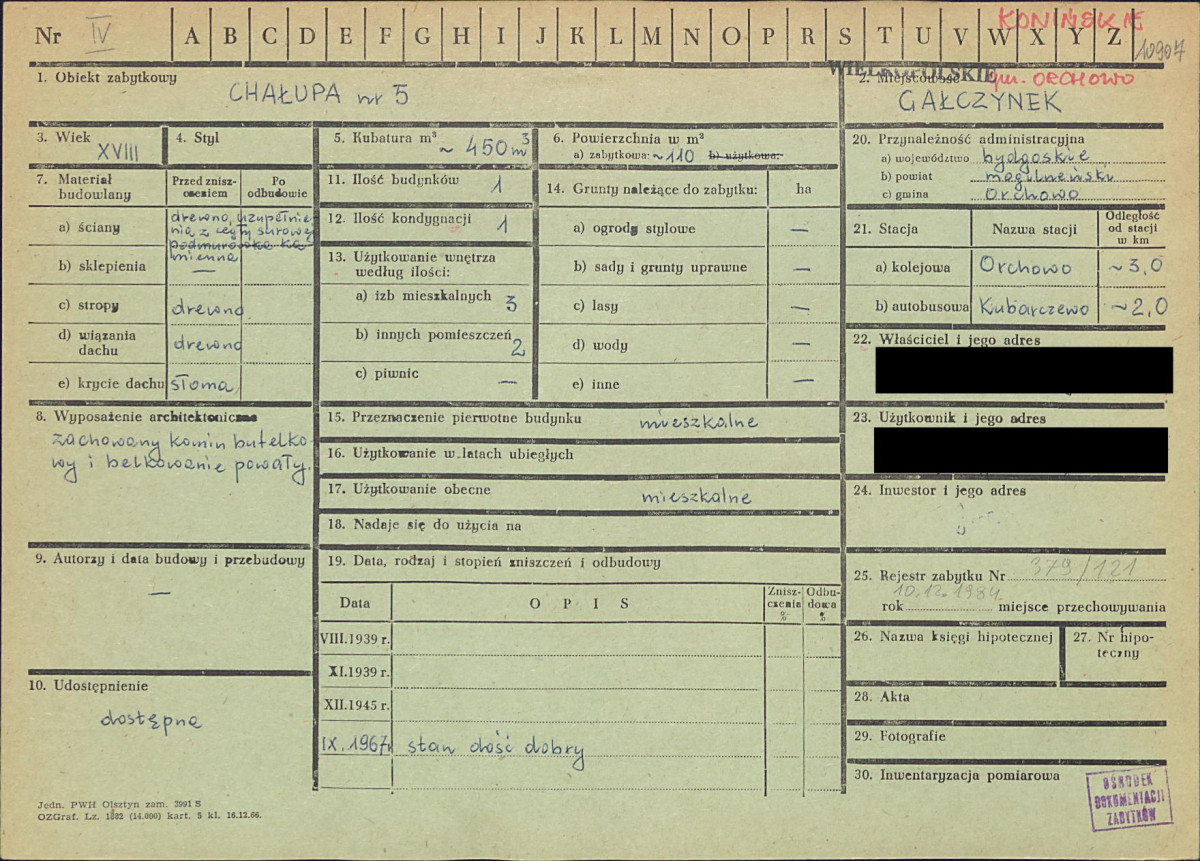 Nr IV A B C D E F G H I J K L M N O P R S T U V W X Y Z
KONIŃSKIE
10907
WIELKOPOLSKIE
gm. ORCHOWO
1. Obiekt zabytkowy
CHAŁUPA nr 5
2. Miejscowość
GAŁCZYNEK
3. Wiek
XVIII
4. Styl
5. Kubatura m³
~ 450 m³
6. Powierzchnia w m²
a) zabytkowa: ~110 b) użytkowa:
7. Materiał budowlany
Przed znisz-
czeniem
Po
odbudowie
a) ściany
drewno, uzupełnie
nia z cegły surowej
podmurówka ka
mienna
b) sklepienia —
c) stropy drewno
d) wiązania
dachu
drewno
e) krycie dachu słoma
8. Wyposażenie architektoniczne
zachowany komin butelko-
wy i belkowanie powały.
9. Autorzy i data budowy i przebudowy
—
10. Udostępnienie
dostępna
11. Ilość budynków 1
12. Ilość kondygnacji 1
13. Użytkowanie wnętrza
według ilości:
a) izb mieszkalnych 3
b) innych pomieszczeń 2
c) piwnic —
14. Grunty należące do zabytku: ha
a) ogrody stylowe —
b) sady i grunty uprawne —
c) lasy —
d) wody —
e) inne —
15. Przeznaczenie pierwotne budynku mieszkalne
16. Użytkowanie w latach ubiegłych
17. Użytkowanie obecne mieszkalne
18. Nadaje się do użycia na
19. Data, rodzaj i stopień zniszczeń i odbudowy
Data OPIS
Znisz-
czenia
%
Odbu-
dowa
%
VIII.1939 r.
XI.1939 r.
XII.1945 r.
IX.1967r stan dość dobry
20. Przynależność administracyjna
a) województwo bydgoskie
b) powiat mogileński
c) gmina Orchowo
21. Stacja Nazwa stacji
Odległość
od stacji
w km
a) kolejowa Orchowo ~3,0
b) autobusowa Kubarczewo ~2,0
22. Właściciel i jego adres
23. Użytkownik i jego adres
24. Inwestor i jego adres
25. Rejestr zabytku Nr 379/121
10.12.1984
rok miejsce przechowywania
26. Nazwa księgi hipotecznej
27. Nr hipo-
teczny
28. Akta
29. Fotografie
30. Inwentaryzacja pomiarowa
OŚRODEK
DOKUMENTACJI
ZABYTKÓW
Jedn. PWH Olsztyn zam. 3991 S
OZGraf. Lz. 1882 (14.000) kart. 5 kl. 16.12.66.